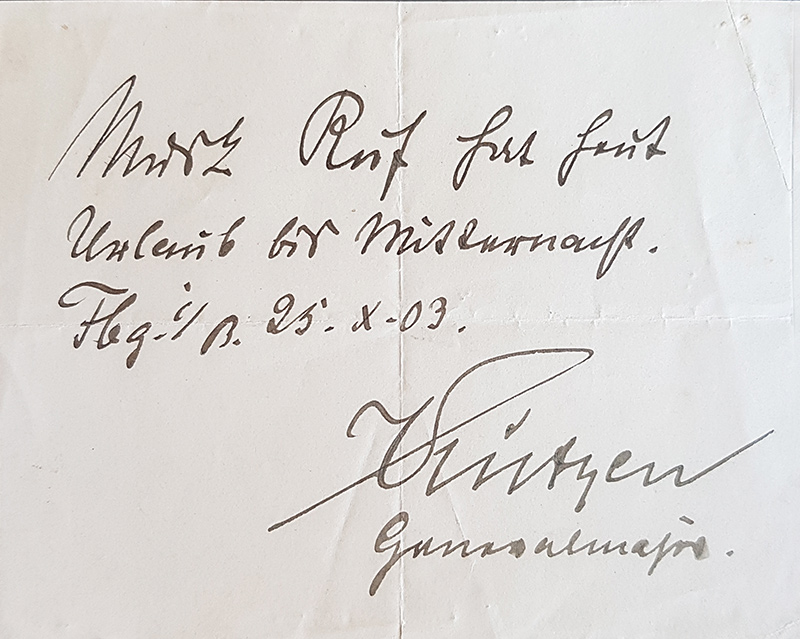 Musk Ruf hat heut
Urlaub bis Mitternacht.
Fbg. i/B. 25. X. 03.
Generalmajor.